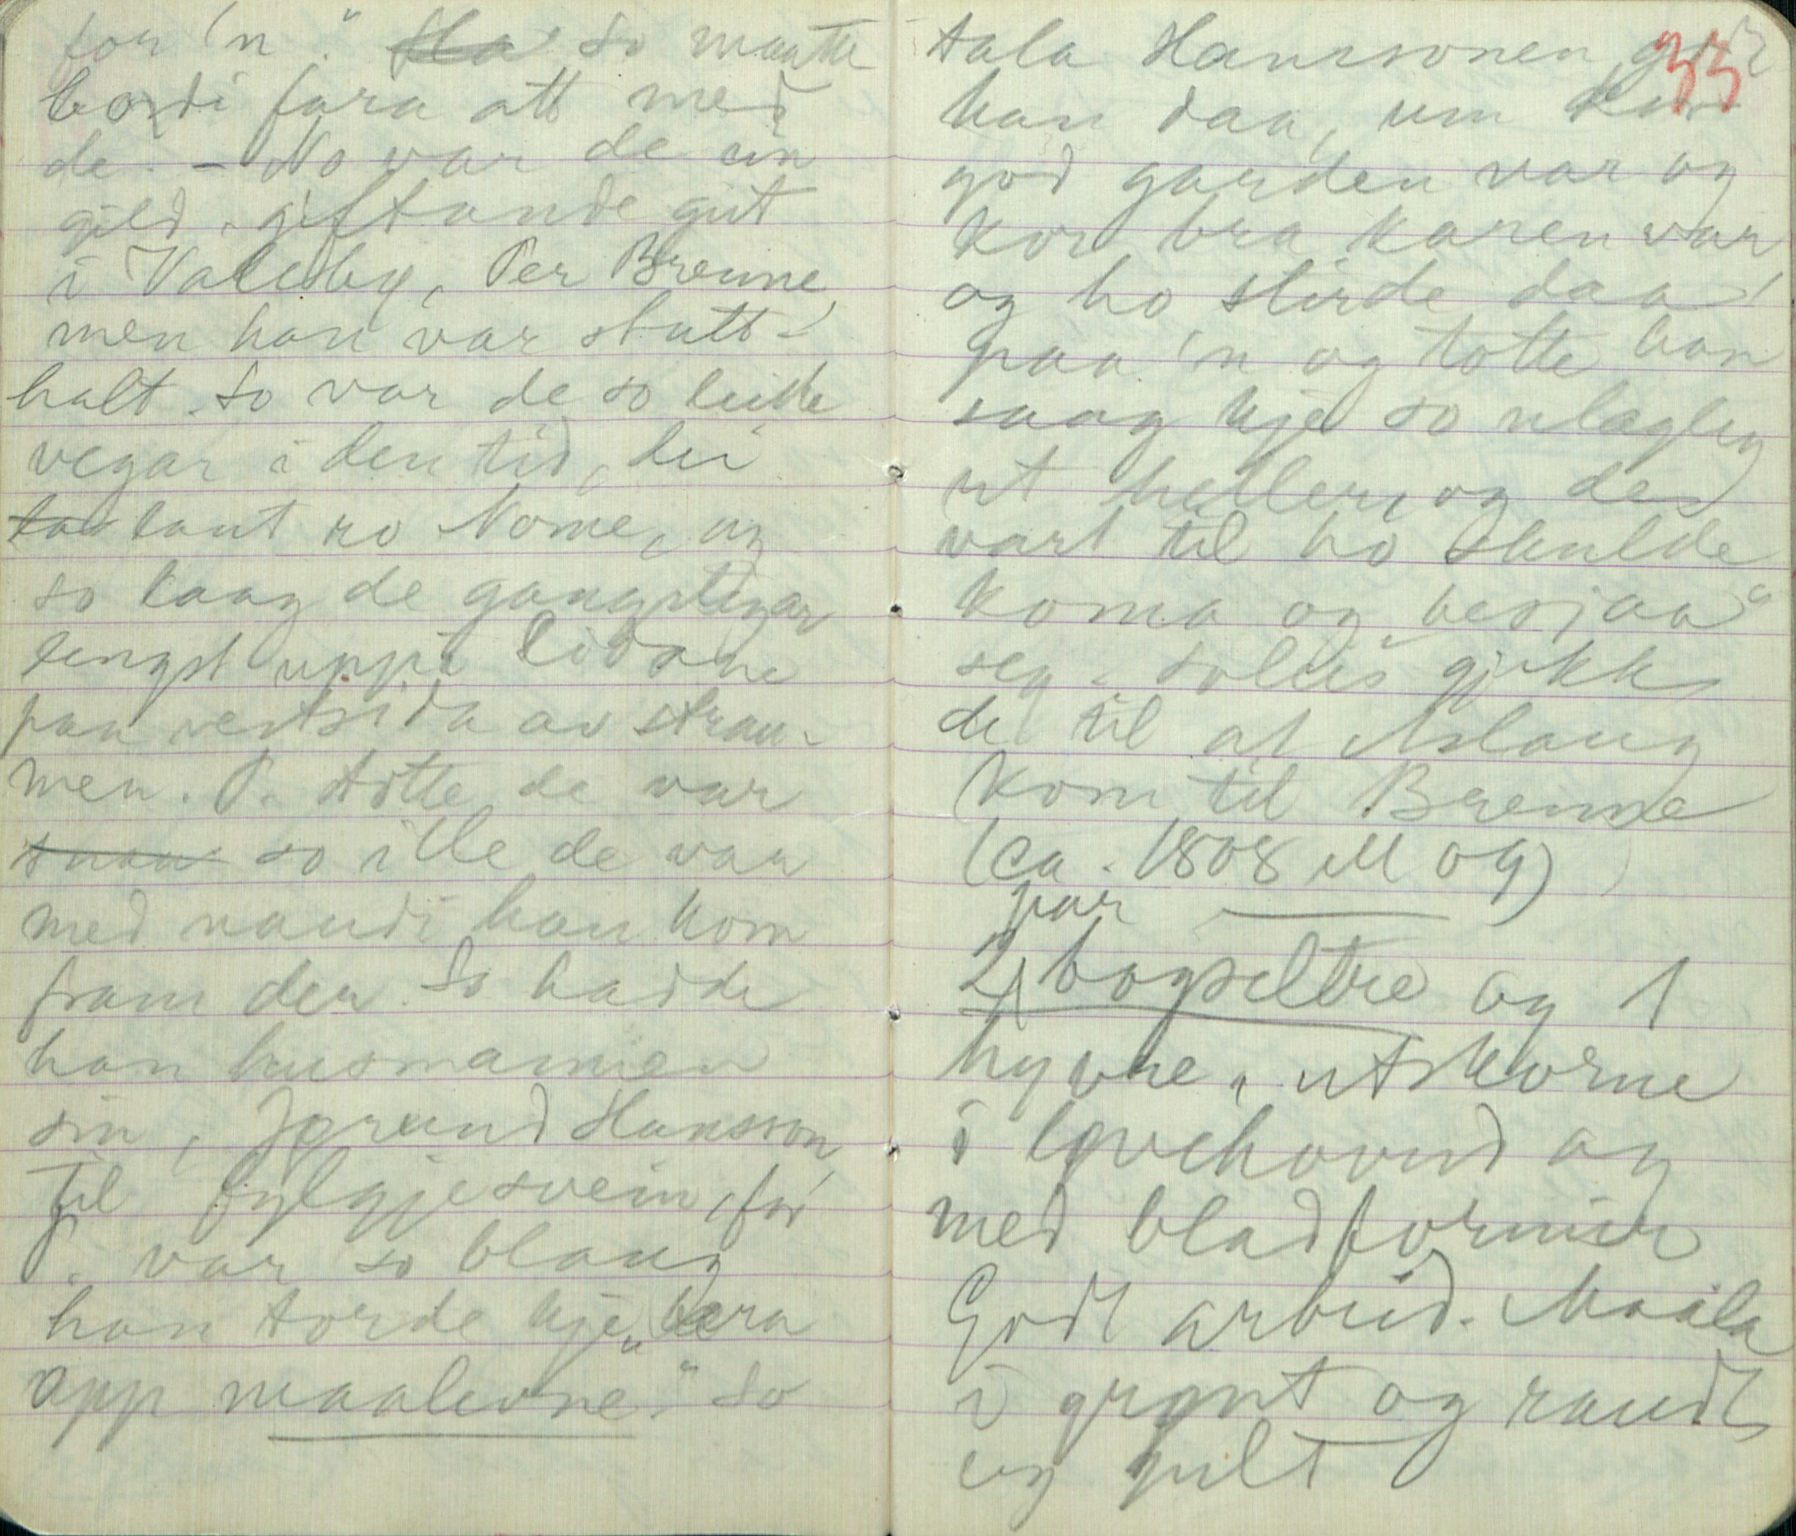 for 'n." Ha so maatte
bordi fara att med
de. - No var de ein
gild, giftande gut
i Valeby, Per Brenne
men han var stutt-
halt. So var de so leitte
vegar i den tid, dei
laut ro Nome, og
so laag de gangstigar
lengst uppi lidane
paa vestsida av strau-
men. P. totte de var
so ille de var
med vandi han kom
fram der. So hadde
han husmannen
sin, Jørund Hansson
til fylgjesvein, for
P. var so blaug
han torde kje "bera
opp maalevne." So
tala Hanssonen
han daa, um kor
god garden var og
kor bra karen var
og ho stirde daa
paa 'n og totte han
saag kje so ulagleg
ut heller, og de
vart til ho skulde
koma og "besjaa"
seg. Solleis gjekk
de til at Aslaug
kom til Brenne
(ca. 1808 M og)
par
2 bogseltre og 1
hyvre, utskorne
i løvehovud og
med bladformer
Godt arbeid. Maala
i grønt og raudt
og gult
33